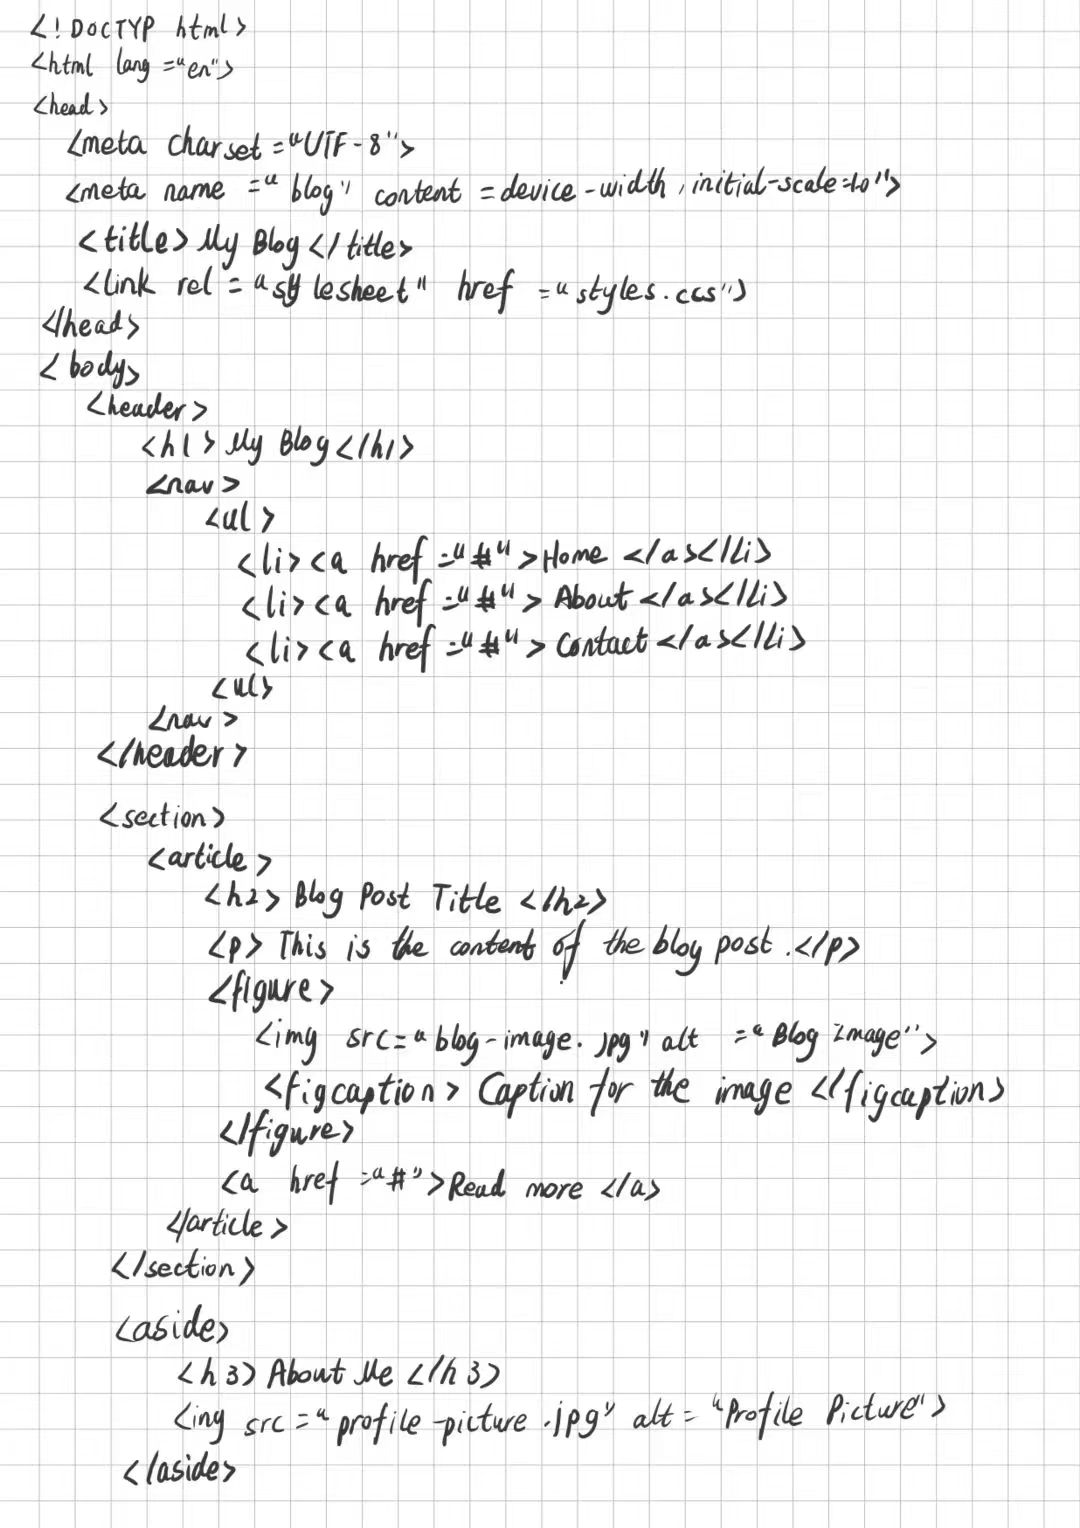 <!DOCTYP html>
<html lang="en">
<head>
<meta charset="UTF-8">
<meta name="blog" content=device-width, initial-scale=1.0">
<title>My Blog</title>
<link rel="stylesheet" href="styles.ccs">
</head>
<body>
<header>
<h1>My Blog</h1>
<nav>
<ul>
<li><a href="#">Home</a></li>
<li><a href="#">About</a></li>
<li><a href="#">Contact</a></li>
<ul>
<nav>
</header>
<section>
<article>
<h2>Blog Post Title</h2>
<p>This is the content of the blog post.</p>
<figure>
<img src="blog-image.jpg" alt="Blog Image">
<figcaption>Caption for the image</figcaption>
</figure>
<a href="#">Read more</a>
</article>
</section>
<aside>
<h3>About Me</h3>
<ing src="profile-picture.jpg" alt="Profile Picture">
</aside>